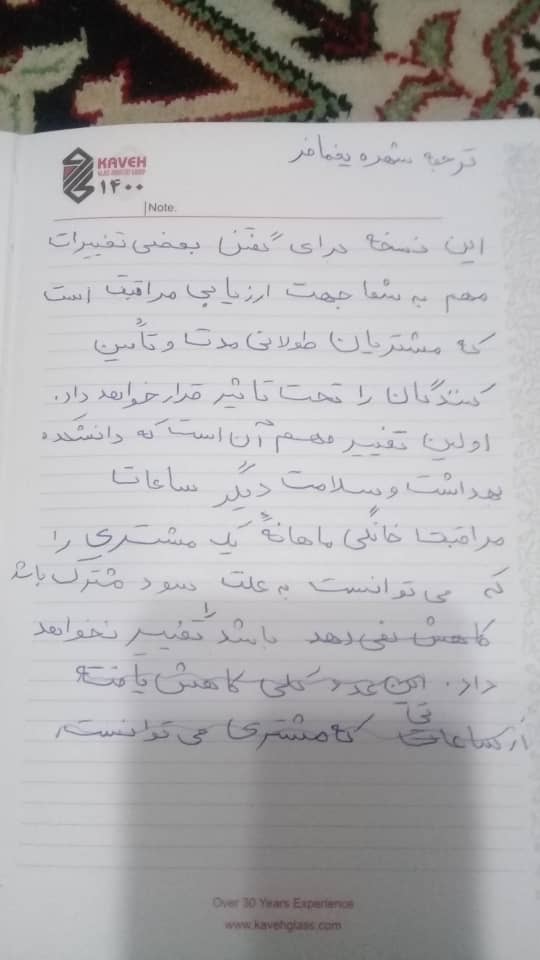 ترجمه شهره یغمافر
KAVEH
GLASS INDUSTRY GROUP
۱۴۰۰
Note.
این نسخه برای گفتن بعضی تغییرات
مهم به شما جهت ارزیابی مراقبت است
که مشتریان طولانی مدت و تأمین
کنندگان را تحت تاثیر قرار خواهد داد.
اولین تغییر مهم آن است که دانشکده
بهداشت و سلامت دیگر ساعات
مراقبت خانگی ماهانهٔ یک مشتری را
که می توانست به علت سود مشترک باشد
کاهش نمی دهد باشد را تغییر نخواهد
داد. این عدد کلی کاهش یافته
از ساعاتی که مشتری می توانست,
Over 30 Years Experience
www.kavehglass.com